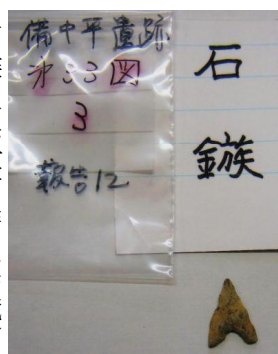 備中平遺跡
第33図
3
報告12
石
鏃